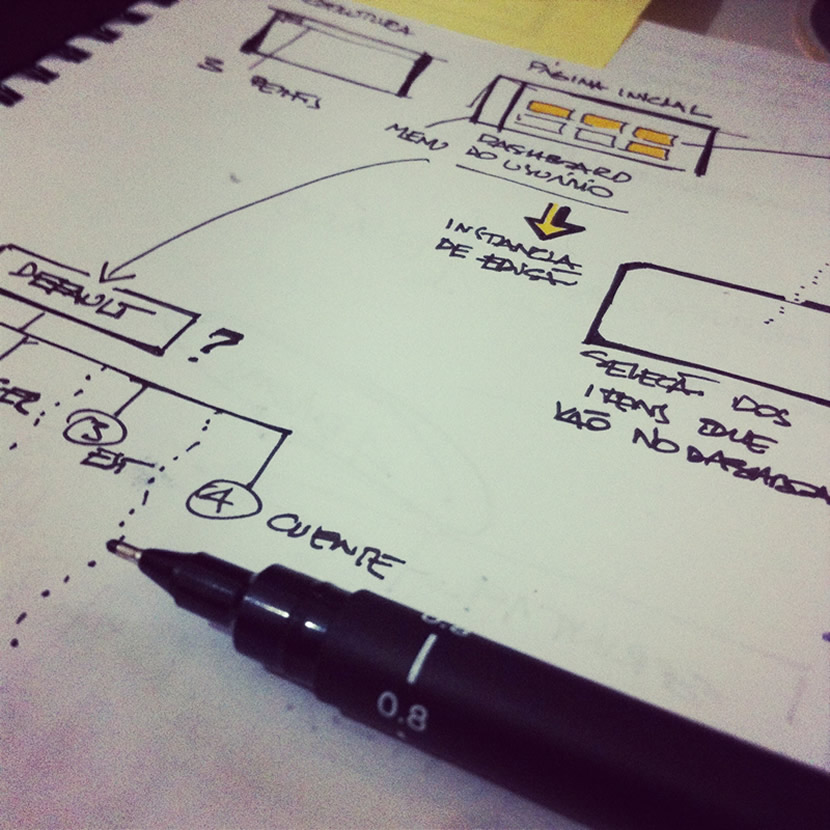 3 PERFIS
PÁGINA INICIAL
MENU
DASHBOARD
DO USUÁRIO
INSTANCIA
DE EDIÇÃO
DEFAULT ?
SELEÇÃO DOS
ITENS QUE
VÃO NO DASHBOARD
3
EST
4 CLIENTE
0.8